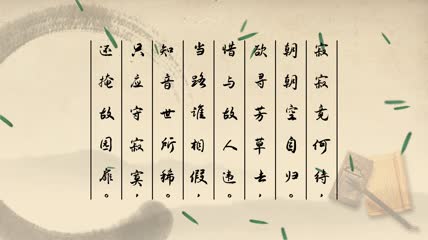 寂寂竟何待，
朝朝空自归。
欲寻芳草去，
惜与故人违。
当路谁相假，
知音世所稀。
只应守寂寞，
还掩故园扉。